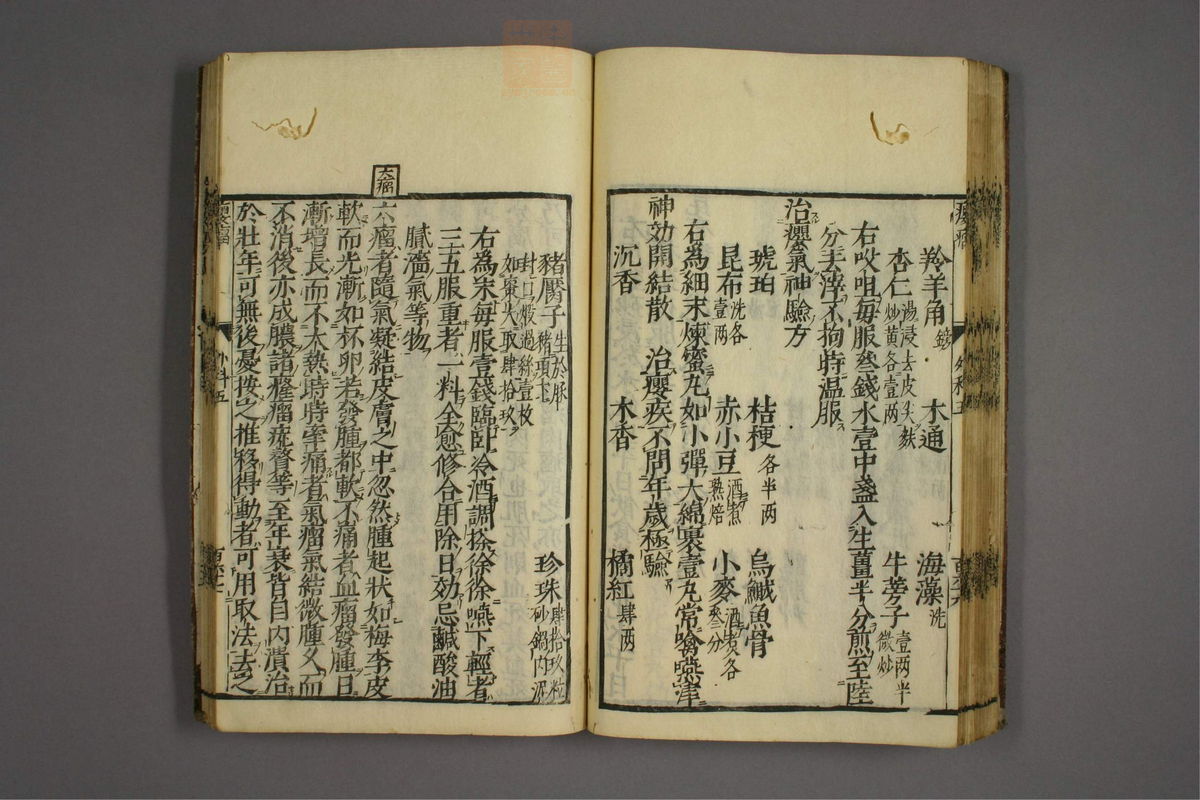 羚羊角鎊　木通　海藻洗
杏仁湯浸去皮尖麩炒黄各壹两　牛蒡子壹两半微炒
右㕮咀每服叁錢水壹中盞入生薑半分煎至陸
分去滓不拘時温服
治癭氣神驗方
琥珀　桔梗各半两　烏鰔魚骨
昆布洗各壹两　赤小豆酒煮熟焙　小麥酒煮各叁分
右為細末煉蜜丸如小彈大綿裹壹丸常噙嚥津
神効開結散　治癭疾不問年歲極驗
沉香　木香　橘紅肆两
猪靨子生於豚猪項下　珍珠肆拾玖粒砂鍋内泥
封口煅過絲壹枚
如棗大取肆拾玖
右為末每服壹錢臨卧冷酒調搽徐徐嚥下輕者
三五服重者一料全愈修合用除日効忌鹹酸油
膩濇氣等物
六瘤
六瘤者隨氣凝結皮膚之中忽然腫起狀如梅李皮
軟而光漸如杯卵若發腫都軟不痛者血瘤發腫日
漸增長而不大熱時時牽痛者氣瘤氣結微腫久而
不消後亦成膿諸癰瘤疣贅等至年衰皆自内潰治
於壯年可無後憂按之推移得動者可用取法去之
外科五